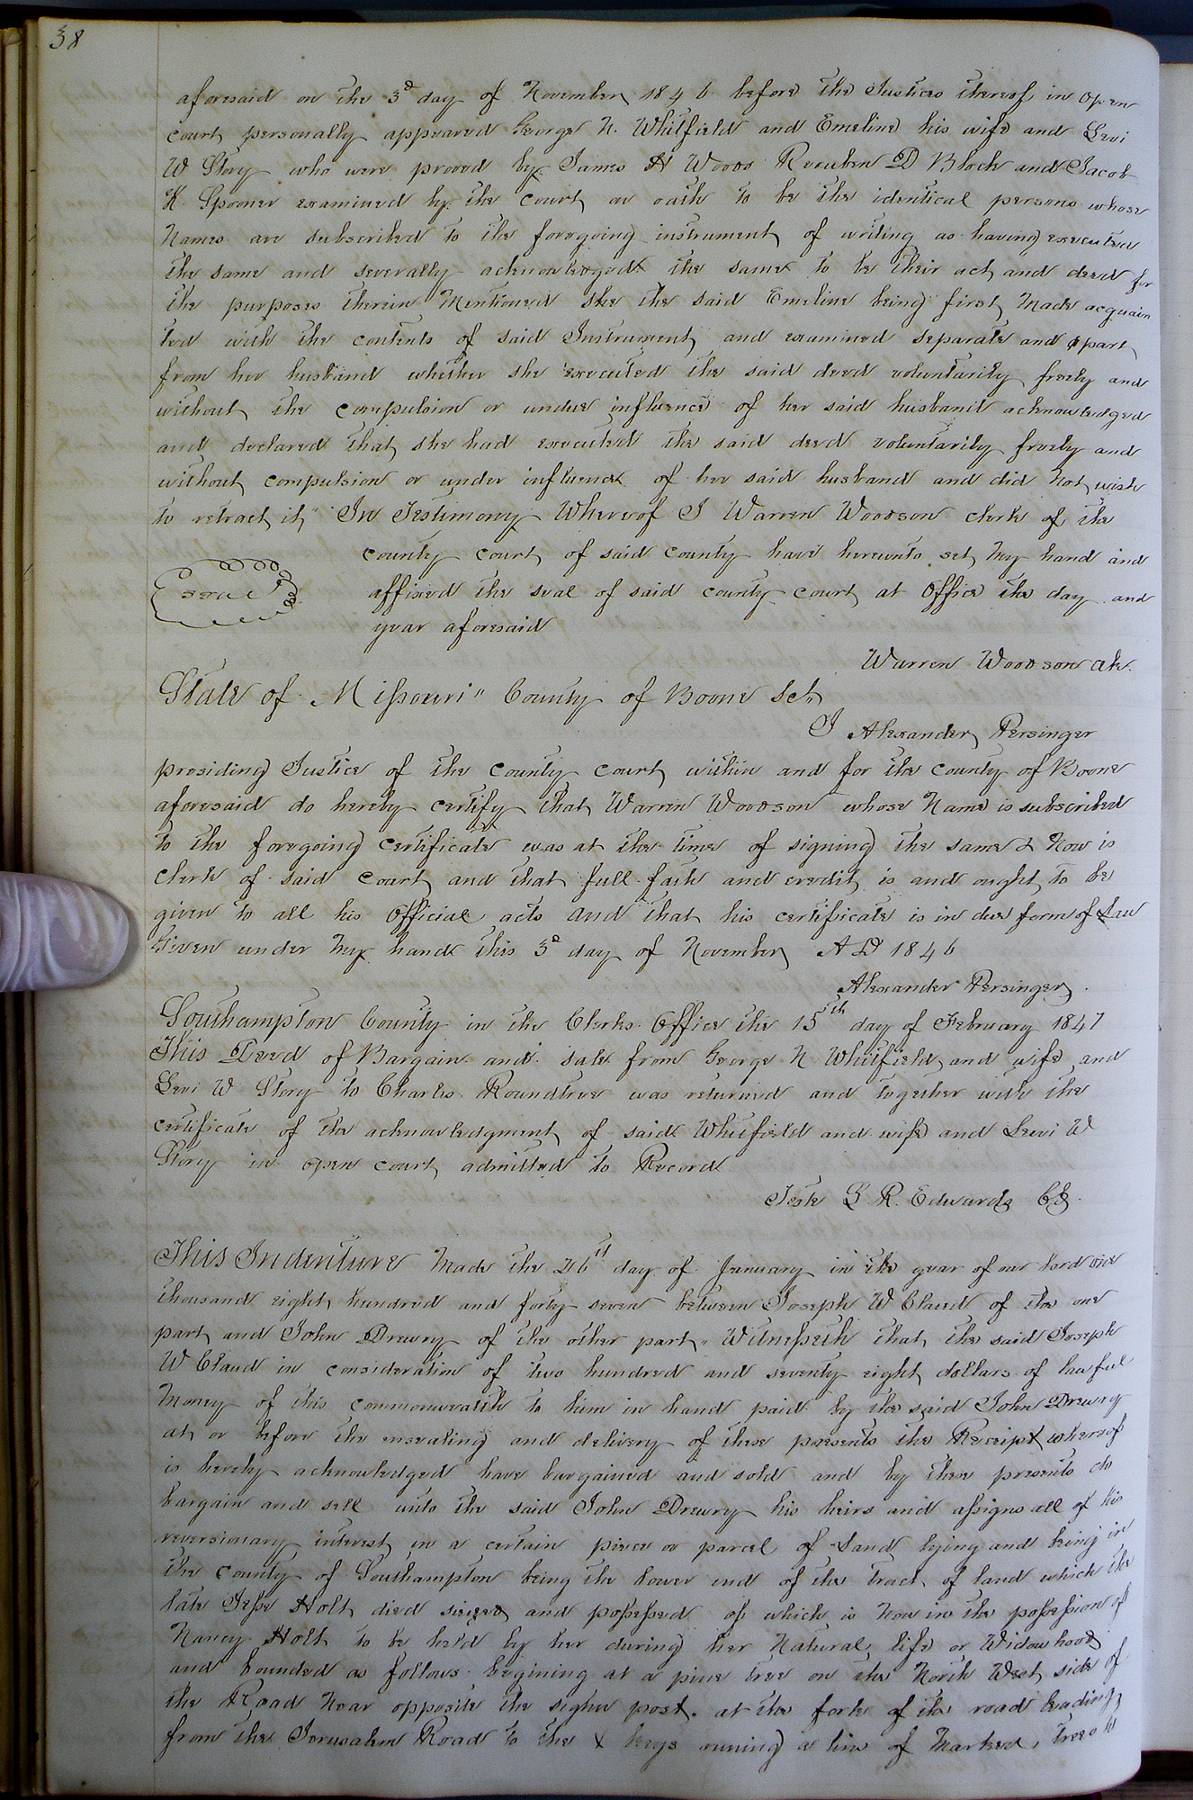 38
aforesaid on the 3d day of November 1846 before the Justices thereof in open
court personally appeared George N. Whitfield and Emeline his wife and Levi
W Story who were proved by James H Woods Reuben D Block and Jacob
K Spooner examined by the court on oath to be the identical persons whose
Names are subscribed to the foregoing instrument of writing as having executed
the same and severally acknowledged the same to be their act and deed for
the purposes therein Mentioned she the said Emeline being first Made acquain
ted with the contents of said Instrument and examined separate and apart
from her husband whether she executed the said deed voluntarily freely and
without the compulsion or undue influence of her said husband acknowledged
and declared that she had executed the said deed voluntarily freely and
without compulsion or under influence of her said husband and did not wish
to retract it" In Testimony Whereof I Warren Woodson clerk of the
county court of said county have hereunto set my hand and
seal
affixed the seal of said county court at Office the day and
year aforesaid
Warren Woodson Clk.
State of Missouri" County of Boone Sct
I Alexander Persinger
presiding Justice of the county court within and for the county of Boone
aforesaid do hereby certify that Warren Woodson whose Name is subscribed
to the foregoing certificate was at the time of signing the same & Now is
clerk of said court and that full faith and credit is and ought to be
given to all his Official acts and that his certificate is in due form of Law
Given under my hand this 3d day of November AD 1846
Alexander Persinger
Southampton County in the Clerks Office the 15th day of February 1847
This Deed of Bargain and sale from George N Whitfield and wife and
Levi W Story to Charles Roundtree was returned and together with the
certificate of the acknowledgment of said Whitfield and wife and Levi W
Story in open court admitted to Record
Teste L R. Edwards Clk.
This Indenture Made the 26th day of January in the year of our Lord one
thousand eight hundred and forty seven between Joseph W Claud of the one
part and John Drewry of the other part, Witnesseth that the said Joseph
W Claud in consideration of two hundred and seventy eight dollars of lawful
Money of this commonwealth to him in hand paid by the said John Drewry
at or before the ensealing and delivery of these presents the Receipt whereof
is hereby acknowledged have bargained and sold and by these presents do
bargain and sell unto the said John Drewry his heirs and assigns all of his
reversionary interest in a certain piece or parcel of Land lying and being in
the county of Southampton being the lower end of the tract of land which the
late Jesse Holt died seized and possessed of which is Now in the possession of
Nancy Holt to be held by her during her Natural life or Widowhood
and bounded as follows begining at a pine tree on the North West side of
the Road Near opposite the sighn post at the fork of the road leading
from the Jerusalem Road to the X keys runing a line of Marked trees to